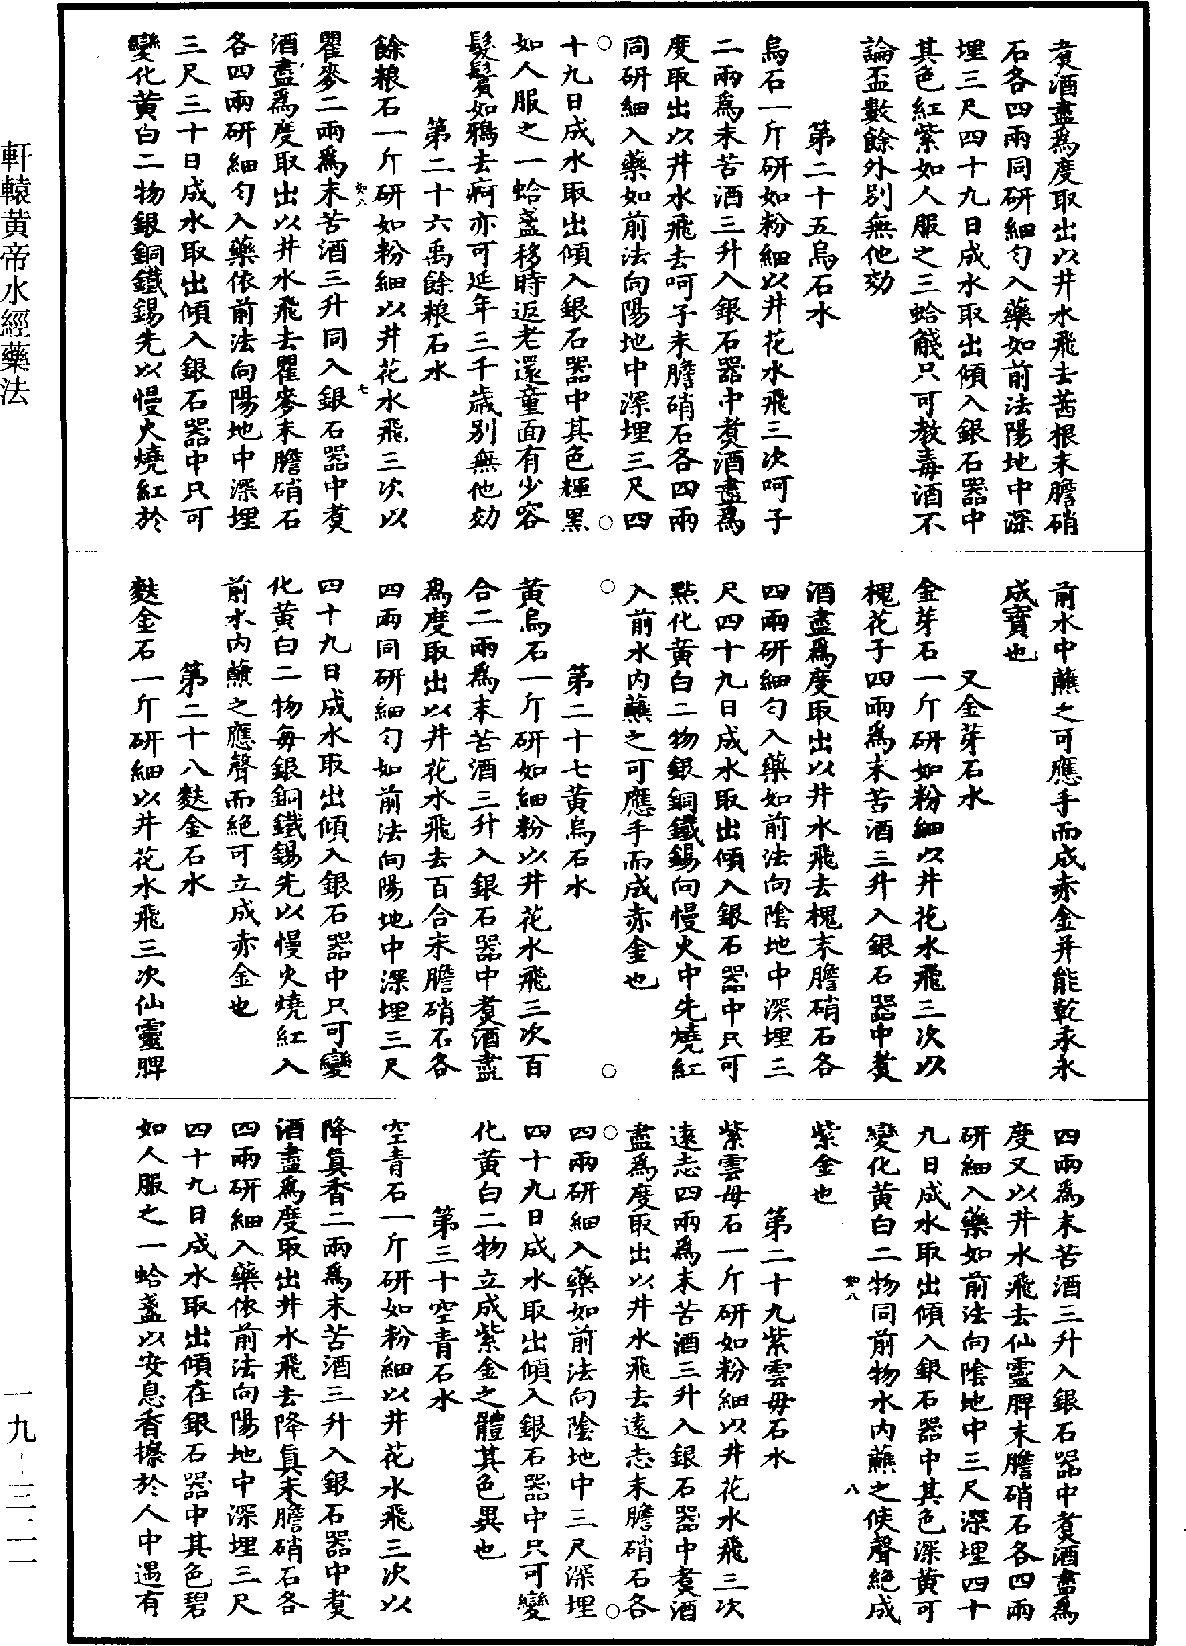 煑酒盡爲度取出以井水飛去茜根末膽硝
石各四兩同研細勻入藥如前法陽地中深
埋三尺四十九日成水取出傾入銀石器中
其色紅紫如人服之三蛤䗃只可教毒酒不
論盃數餘外別無他効
第二十五烏石水
烏石一斤研如粉細以井花水飛三次呵子
二兩爲末苦酒三升入銀石器中煑酒盡爲
度取出以井水飛去呵子末膽硝石各四兩
同研細入藥如前法向陽地中深埋三尺四
十九日成水取出傾入銀石器中其色輝黑
如人服之一蛤盞移時返老還童面有少容
髮鬢如鴉去痾亦可延年三千歲別無他効
第二十六禹餘粮石水
餘粮石一斤研如粉細以井花水飛三次以
瞿麥二兩爲末苦酒三升同入銀石器中煑
酒盡爲度取出以井水飛去瞿麥末膽硝石
各四兩研細勻入藥依前法向陽地中深埋
三尺三十日成水取出傾入銀石器中只可
變化黄白二物銀銅鐵錫先以慢火燒紅於
前水中蘸之可應手而成赤金并能乾汞永
成寳也
又金芽石水
金芽石一斤研如粉細以井花水飛三次以
槐花子四兩爲末苦酒三升入銀石器中煑
酒盡爲度取出以井水飛去槐末膽硝石各
四兩研細勻入藥如前法向陰地中深埋三
尺四十九日成水取出傾入銀石器中只可
點化黄白二物銀銅鐵錫向慢火中先燒紅
入前水内蘸之可應手而成赤金也
第二十七黄烏石水
黄烏石一斤研如細粉以井花水飛三次百
合二兩爲末苦酒三升入銀石器中煑酒盡
爲度取出以井花水飛去百合末膽硝石各
四兩同研細勻如前法向陽地中深埋三尺
四十九日成水取出傾入銀石器中只可變
化黄白二物每銀銅鐵錫先以慢火燒紅入
前水内蘸之應聲而絕可立成赤金也
第二十八麩金石水
麩金石一斤研細以井花水飛三次仙靈脾
四兩爲末苦酒三升入銀石器中煑酒盡爲
度又以井水飛去仙靈脾末膽硝石各四兩
研細入藥如前法向陰地中三尺深埋四十
九日成水取出傾入銀石器中其色深黄可
變化黄白二物同前物水内蘸之候聲絕成
紫金也
第二十九紫雲母石水
紫雲母石一斤研如粉細以井花水飛三次
遠志四兩爲末苦酒三升入銀石器中煑酒
盡爲度取出以井水飛去遠志末膽硝石各
四兩研細入藥如前法向陰地中三尺深埋
四十九日成水取出傾入銀石器中只可變
化黄白二物立成紫金之體其色異也
第三十空青石水
空青石一斤研如粉細以井花水飛三次以
降真香二兩爲末苦酒三升入銀石器中煑
酒盡爲度取出井水飛去降真末膽硝石各
四兩研細入藥依前法向陽地中深埋三尺
四十九日成水取出傾在銀石器中其色碧
如人服之一蛤盞以安息香擦於人中遇有
軒轅黄帝水經藥法
一九-三二一